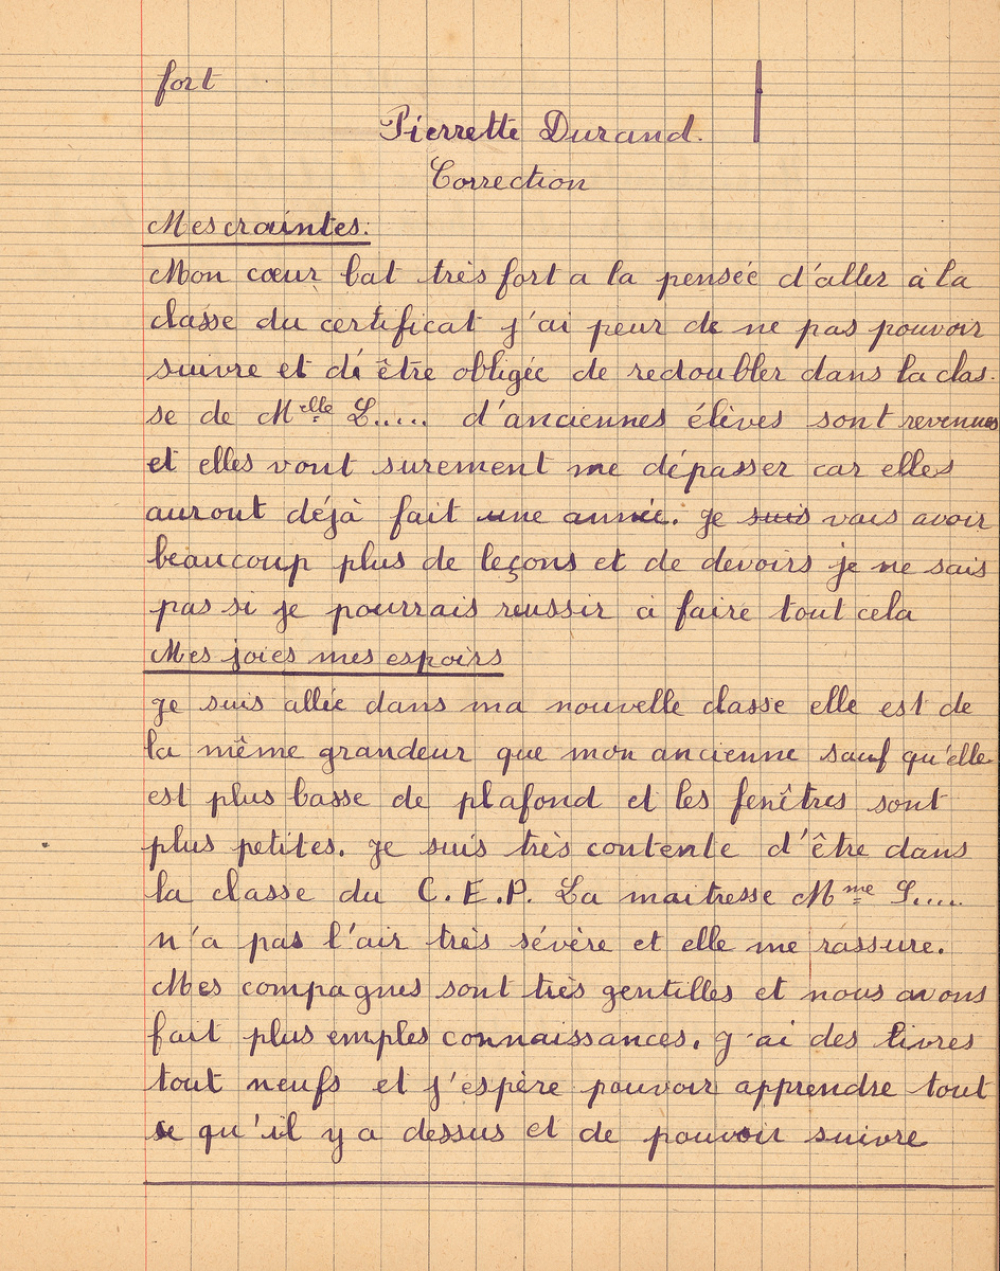 fort
Pierrette Durand.
Correction
Mes craintes:
Mon cœur bat très fort a la pensée d'aller à la
classe du certificat j'ai peur de ne pas pouvoir
suivre et d'être obligée de redoubler dans la clas-
se de Melle L..... d'anciennes élèves sont revenues
et elles vont surement me dépasser car elles
auront déjà fait une année. Je suis vais avoir
beaucoup plus de leçons et de devoirs je ne sais
pas si je pourrais reussir à faire tout cela
Mes joies mes espoirs
Je suis allée dans ma nouvelle classe elle est de
la même grandeur que mon ancienne sauf qu'elle
est plus basse de plafond et les fenêtres sont
plus petites. Je suis très contente d'être dans
la classe du C.E.P. La maitresse Mme S.....
n'a pas l'air très sévère et elle me rassure.
Mes compagnes sont très gentilles et nous avons
fait plus emples connaissances. J'ai des livres
tout neufs et j'espère pouvoir apprendre tout
se qu'il y a dessus et de pouvoir suivre